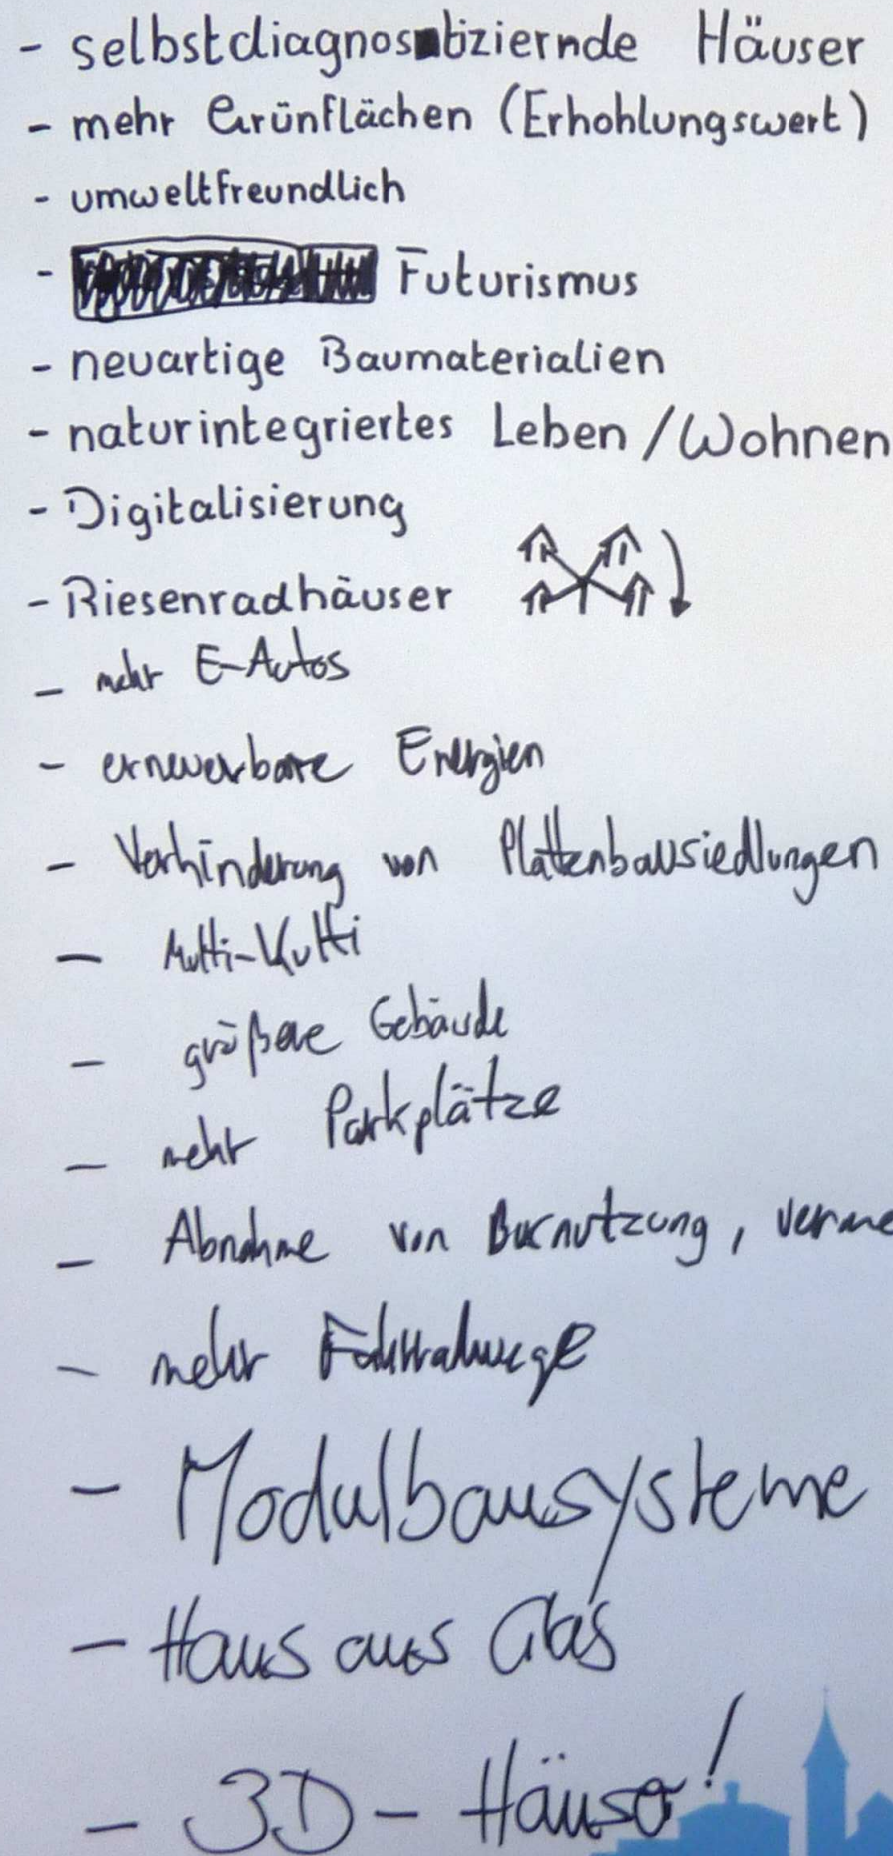 - selbstdiagnostiziernde Häuser
- mehr Grünflächen (Erhohlungswert)
- umweltfreundlich
- Futurismus
- neuartige Baumaterialien
- naturintegriertes Leben / Wohnen
- Digitalisierung
- Riesenradhäuser
- mehr E-Autos
- erneuerbare Energien
- Verhinderung von Plattenbausiedlungen
- Multi-Kulti
- größere Gebäude
- mehr Parkplätze
- Abnahme von Busnutzung, verme
- mehr Fahrradwege
- Modulbausysteme
- Haus aus Glas
- 3D - Häuser!